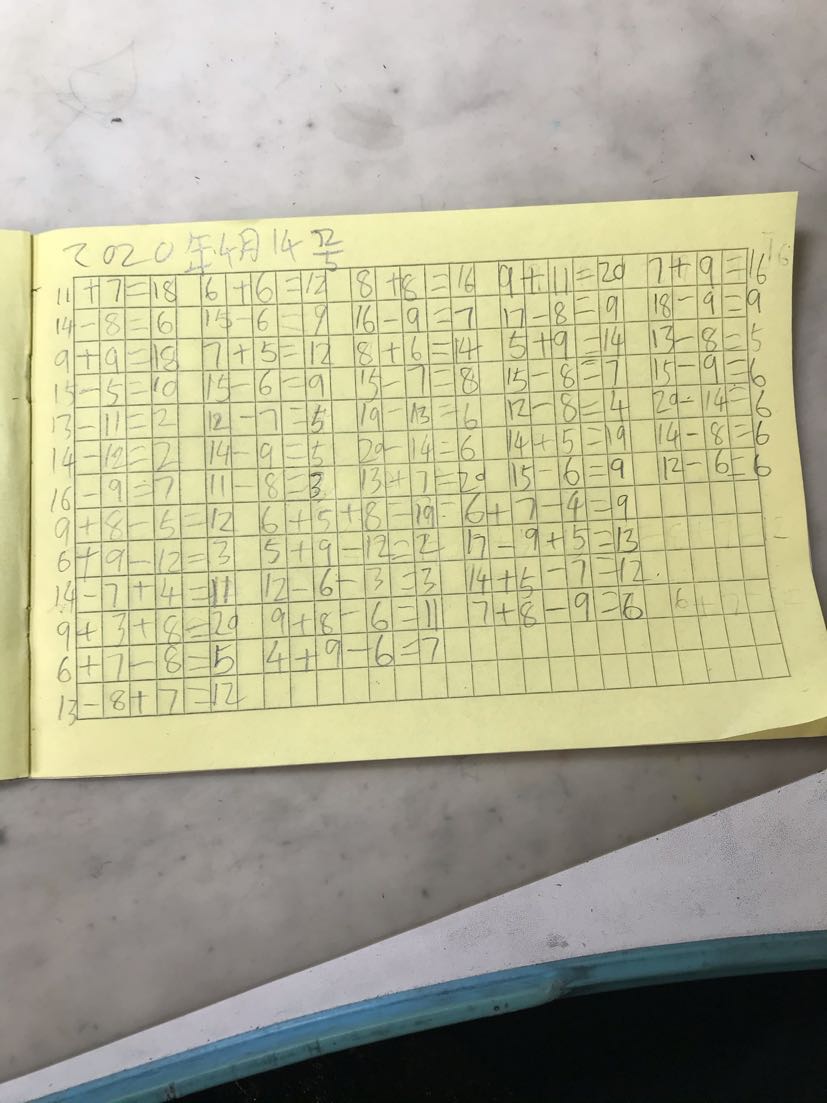 2020年4月14号
11+7=18 6+6=12 8+8=16 9+11=20 7+9=16
14-8=6 15-6=9 16-9=7 17-8=9 18-9=9
9+9=18 7+5=12 8+6=14 5+9=14 13-8=5
15-5=10 15-6=9 15-7=8 15-8=7 15-9=6
13-11=2 12-7=5 19-13=6 12-8=4 20-14=6
14-12=2 14-9=5 20-14=6 14+5=19 14-8=6
16-9=7 11-8=3 13+7=20 15-6=9 12-6=6
9+8-5=12 6+5+8=19 6+7-4=9
6+9-12=3 5+9-12=2 17-9+5=13
14-7+4=11 12-6-3=3 14+5-7=12
9+3+8=20 9+8-6=11 7+8-9=6
6+7-8=5 4+9-6=7
13-8+7=12